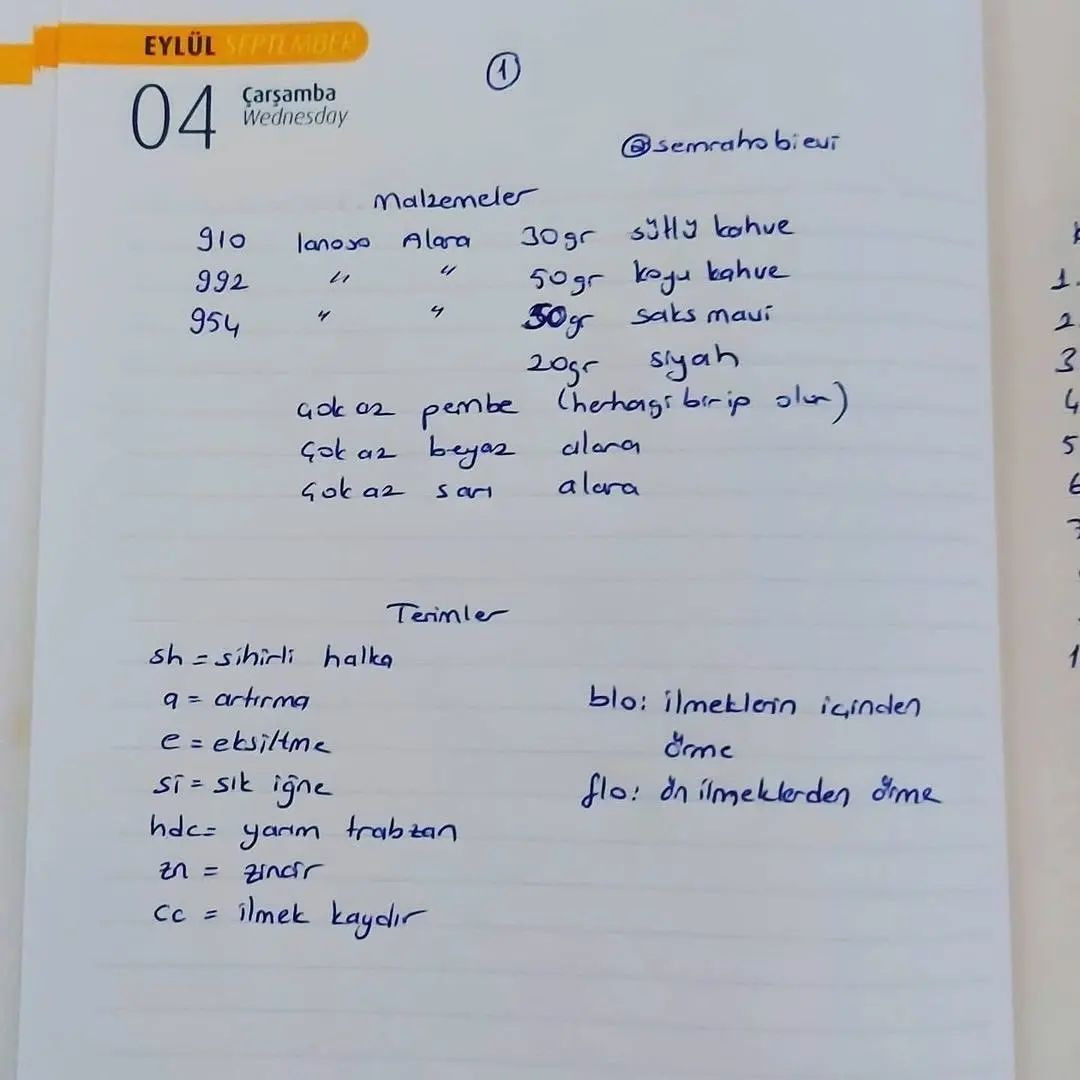 EYLÜL SEPTEMBER
04 Çarşamba
Wednesday
1
@semrahobievi
Malzemeler
910 lanoso Alara 30gr sütlü kahve
992 " " 50gr koyu kahve
954 " " 50gr saks mavi
20gr siyah
çok az pembe (herhagi bir ip olur)
çok az beyaz alara
çok az sarı alara
Terimler
sh = sihirli halka
a = artırma
e = eksiltme
si = sık iğne
hdc = yarım trabzan
zn = zincir
cc = ilmek kaydır
blo: ilmeklerin içinden
örme
flo: ön ilmeklerden örme
1.
2.
3
4
5
6
7
1